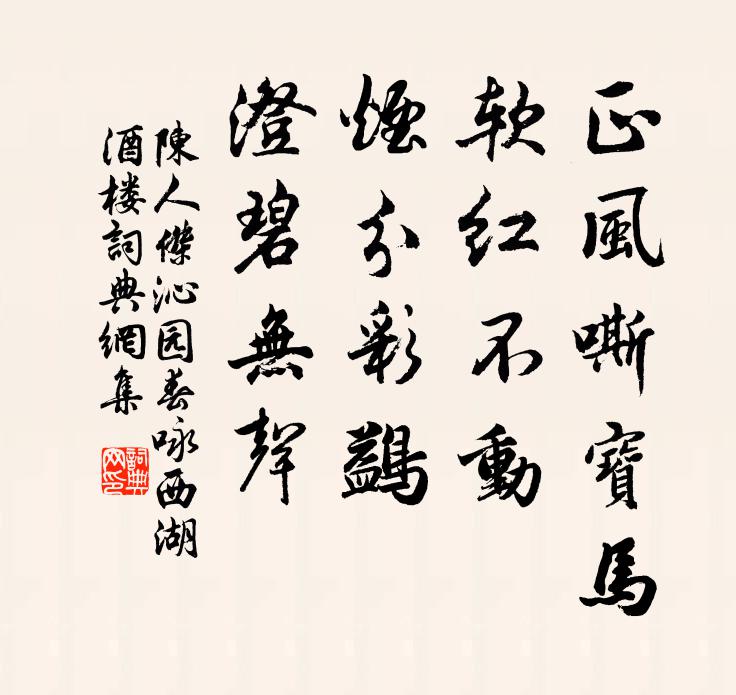 正風嘶寶馬
軟紅不動
煙分彩鷁
澄碧無聲
陳人傑沁园春咏西湖
酒楼詞典網集
詞典网印